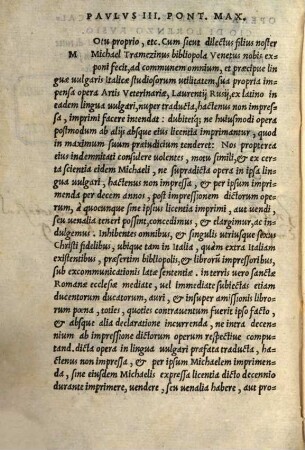 PAVLVS III. PONT. MAX.
Otu proprio, etc. Cum sicut dilectus filius noster
M Michael Tramezinus bibliopola Venetus nobis ex
poni fecit, ad communem omnium, et præcipue lin
guæ vulgari Italicæ studiosorum utilitatem sua propria im
pensa opera Artis Veterinariæ, Laurentij Rusij, ex latino in
eadem lingua vulgari, nuper traducta, hactenus non impres
sa, imprimi facere intendat: dubitetq; ne huiusmodi opera
postmodum ab alijs absque eius licentia imprimantur, quod
in maximum suum præiudicium tenderet: Nos propterea
eius indemnitati consulere uolentes, motu simili, & ex cer
ta scientia eidem Michaeli, ne supradicta opera in ipsa lin
gua uulgari, hactenus non impressa, & per ipsum imprim
menda per decem annos, post impressionem dictorum oper
rum, à quocunque sine ipsius licentia imprimi, aut uendi,
seu uenalia teneri possint, concedimus, & elargimur, ac in
dulgemus. Inhibentes omnibus, & singulis utriusque sexus
Christi fidelibus, ubique tam in Italia, quàm extra Italiam
existentibus, præsertim bibliopolis, & librorũ impressoribus,
sub excommunicationis latæ sententiæ, in terris uero sanctæ
Romanæ ecclesiæ mediate, uel immediate subiectis etiam
ducentorum ducatorum, auri, & insuper amissionis libro
rum pœna, toties, quoties contrauentum fuerit ipso facto,
& absque alia declaratione incurrenda, ne intra decen
nium ab impressione dictorum operum respectiue compu
tand. dicta opera in lingua uulgari præfata traducta, ha
ctenus non impressa, & per ipsum Michaelem imprimen
da, sine eiusdem Michaelis expressa licentia dicto decennio
durante imprimere, uendere, seu uenalia habere, aut pro-